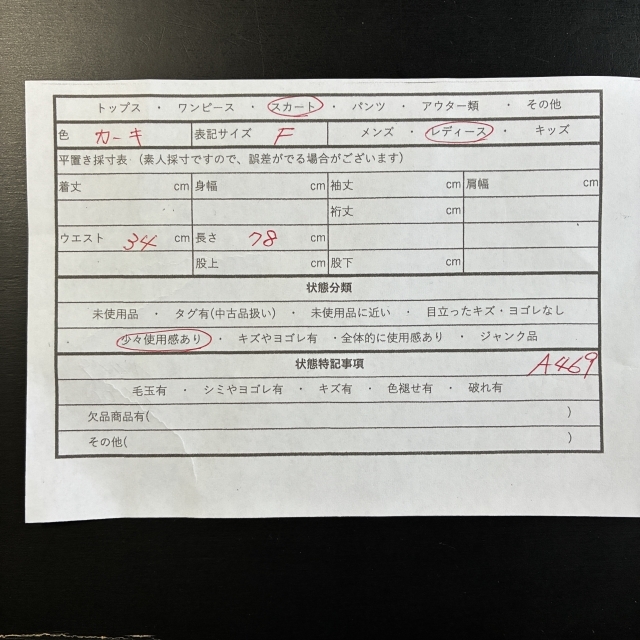 トップス ・ ワンピース ・ スカート ・ パンツ ・ アウター類 ・ その他
色 カーキ 表記サイズ F メンズ ・ レディース ・ キッズ
平置き採寸表 (素人採寸ですので、誤差がでる場合がございます)
着丈 cm 身幅 cm 袖丈 cm 肩幅 cm
裄丈 cm
ウエスト 34 cm 長さ 78 cm
股上 cm 股下 cm
状態分類
未使用品 ・ タグ有(中古品扱い) ・ 未使用品に近い ・ 目立ったキズ・ヨゴレなし
少々使用感あり ・ キズやヨゴレ有 ・全体的に使用感あり ・ ジャンク品
状態特記事項 A469
毛玉有 ・ シミやヨゴレ有 ・ キズ有 ・ 色褪せ有 ・ 破れ有
欠品商品有( )
その他( )